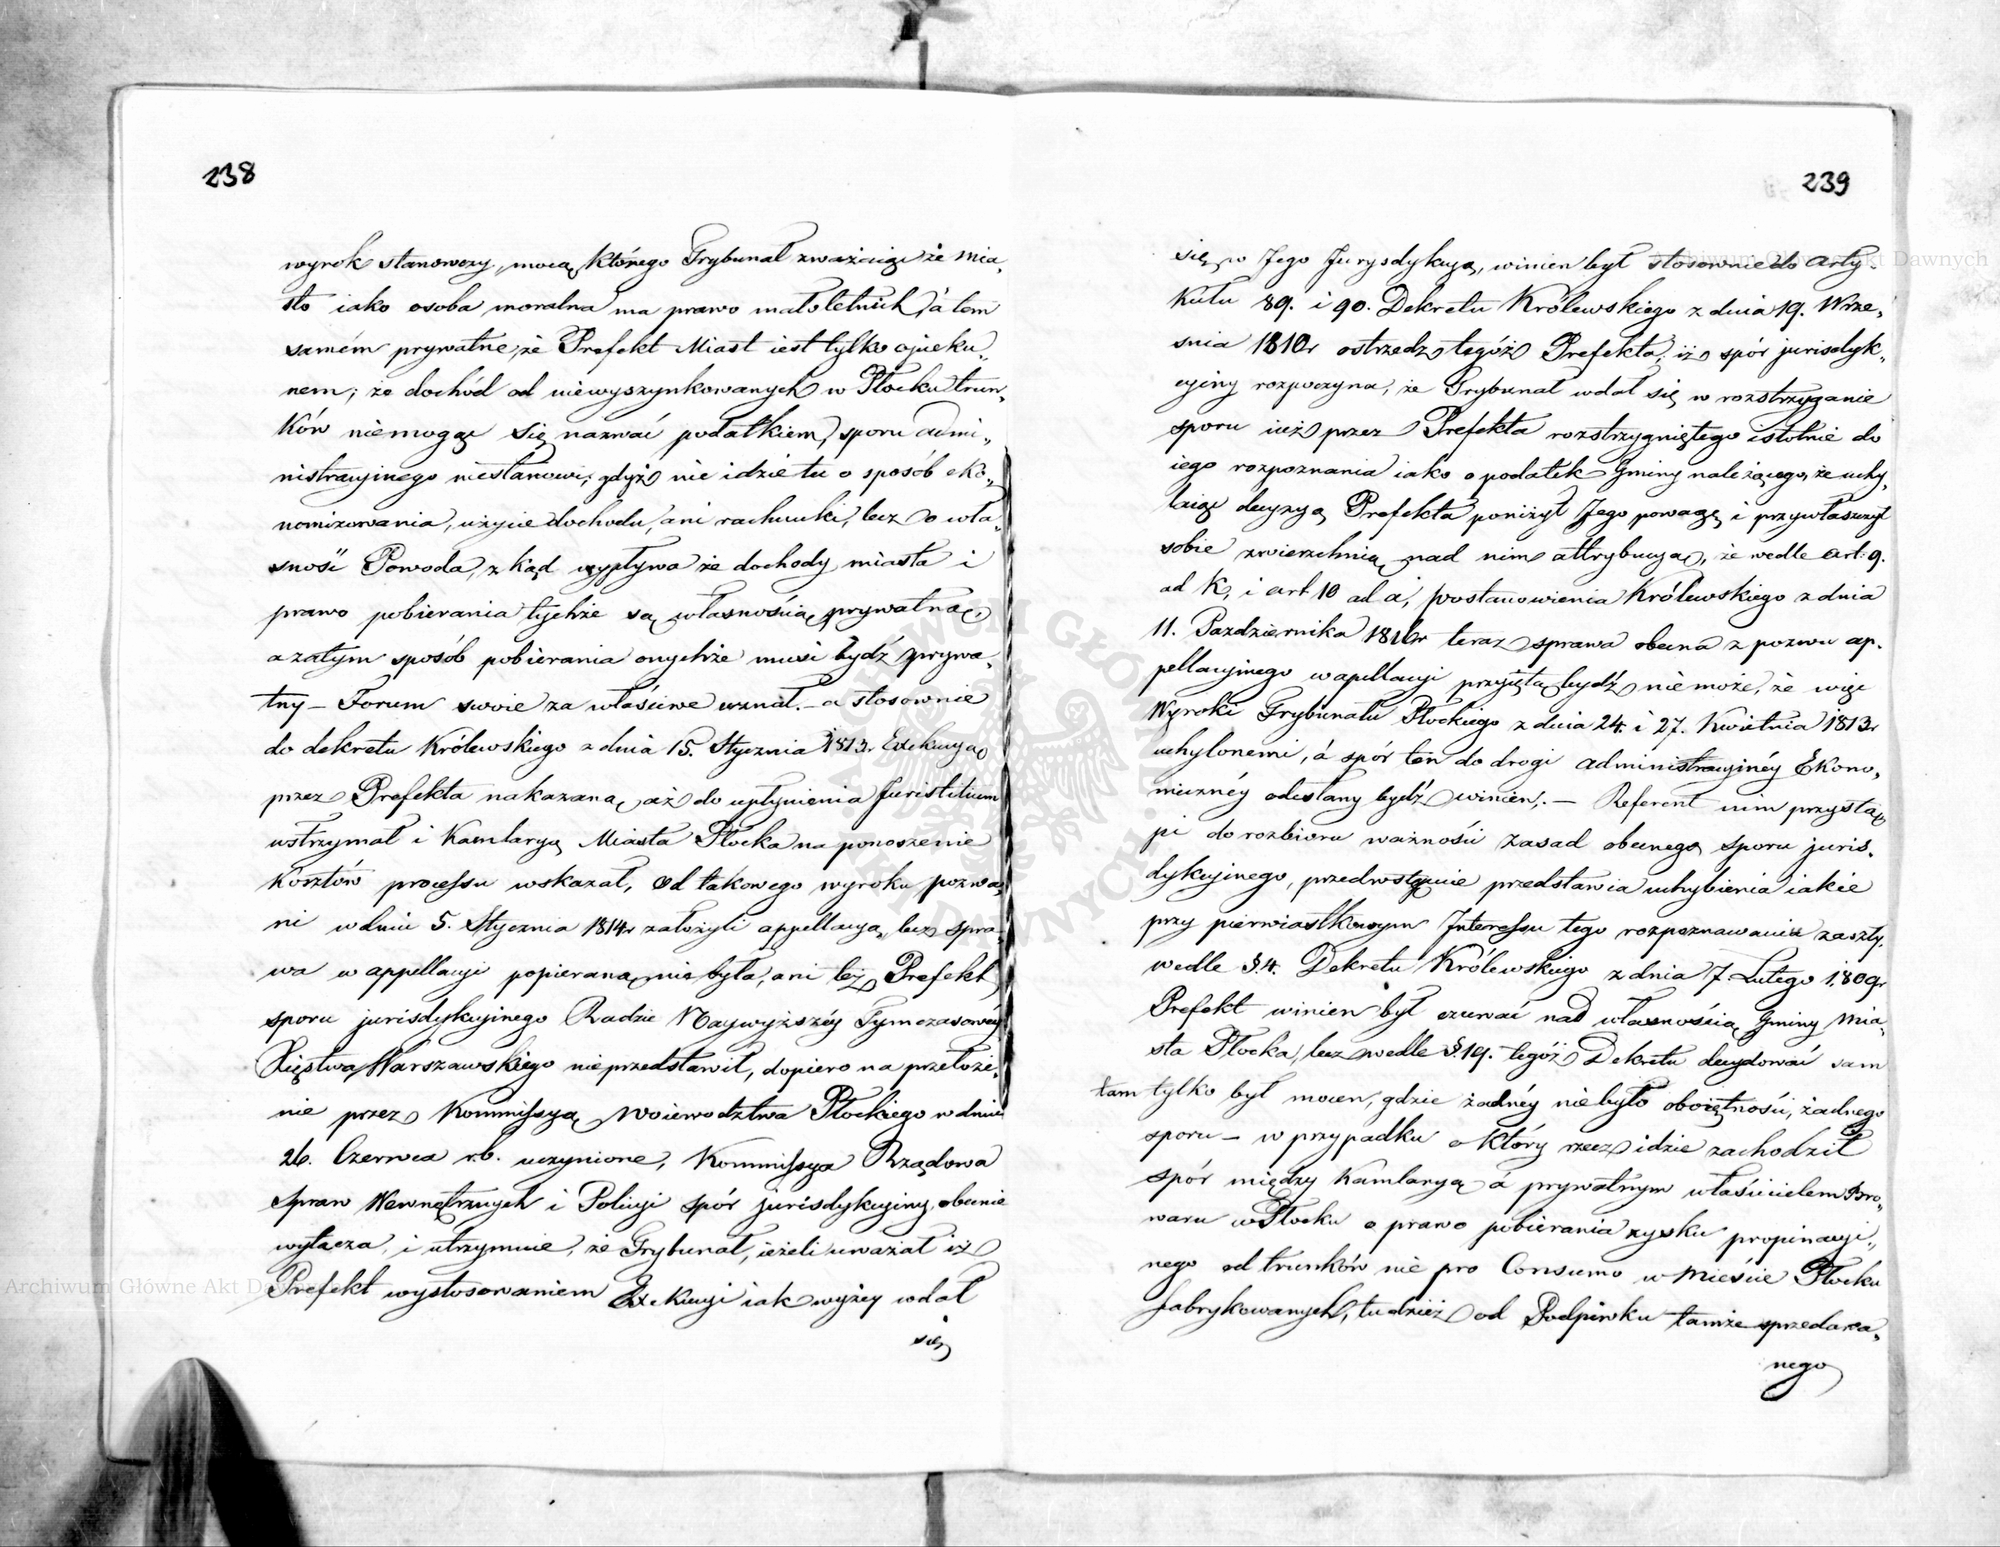 238
wyrok stanowczy, mocą którego Trybunał zważaiąc że mia„
sto iako osoba moralna ma prawo małoletnich, á tem
samém prywatne, że Prefekt Miast iest tylko opieku„
nem; że dochód od niewyszynkowanych w Płocku trun„
ków niemogąc się nazwać podatkiem, sporu admi„
nistracyinego niestanowi, gdyż nie idzie tu o sposób eko„
nomizowania, użycie dochodu, ani rachunki, lecz o wła„
sność Powoda, z kąd wypływa że dochody miasta i
prawo pobierania tychże są własnością prywatną
a zatym sposób pobierania onychże musi bydź prywa„
tny – Forum swoie za właściwe uznał. – a stosownie
do dekretu Królewskiego z dnia 15. Stycznia 1813r Exekucyą
przez Prefekta nakazaną, aż do upłynienia Juristitium
wstrzymał i Kamlaryą Miasta Płocka na ponoszenie
kosztów processu wskazał, od takowego wyroku pozwa„
ni w dniu 5. Stycznia 1814r założyli appellacyą, lecz spra„
wa w appellacyi popieraną nie była, ani też Prefekt
sporu jurisdykcyinego Radzie Naywyższéy Tymczasowéy
Xięstwa Warszawskiego nieprzedstawił, dopiero na przełoże„
nie przez Kommissyą Woiewodztwa Płockiego w dniu
26. Czerwca r.b. uczynione, Kommissya Rządowa
Spraw Wewnętrznych i Policyi spór jurisdykcyiny obecnie
wytacza, i utrzymuie, że Trybunał, ieżeli uważał iż
Prefekt wystosowaniem Exekucyi iak wyżey wdał
się
239
się w Jego Jurysdykcyą, winien był stosownie do Arty„
kułu 89. i 90. Dekretu Królewskiego z dnia 19. Wrze„
snia 1810r ostrzedz tegóż Prefekta, iż spór jurisdyk„
cyiny rozpoczyna, że Trybunał wdał się w rozstrzyganie
sporu iuż przez Prefekta rozstrzygniętego istotnie do
iego rozpoznania iako o podatek Gminy należącego, że uchy„
laiąc decyzyą Prefekta poniżył Jego powagę i przywłaszczył
sobie zwierzchnią nad nim attrybucyą, że wedle art: 9.
ad K, i art 10 ad a, postanowienia Królewskiego z dnia
11. Pazdziernika 1816r teraz sprawa obecna z pozwu ap„
pellacyinego w apellacyi przyiętą bydź niemoże, że więc
Wyroki Trybunału Płockiego z dnia 24. i 27. Kwietnia 1813r
uchylonemi, á spór ten do drogi administracyinéy Ekono„
miczney odesłany bydź winien. – Referent nim przystą„
pi do rozbioru ważności zasad obecnego sporu juris„
dykcyinego, przedwstępnie przedstawia uchybienia iakie
przy pierwiastkowym Interessu tego rozpoznawaniu zaszły.
wedle §.4. Dekretu Królewskiego z dnia 7 Lutego 1809r
Prefekt winien był czuwać nad własnością Gminy Mia„
sta Płocka, lecz wedle §.19. tegóż Dekretu decydować sam
tam tylko był mocen, gdzie żadnéy niebyło oboiętności, żadnego
sporu – w przypadku o który rzecz idzie zachodził
spór między Kamlaryą á prywatnym właścicielem Bro„
waru w Płocku o prawo pobierania zysku propinacyi„
nego od trunków nie pro Consumo w Mieście Płocku
fabrykowanych, tudzież od Podpiwku tamże sprzedawa„
nego
Archiwum Główne Akt Dawnych
Archiwum Główne Akt Dawnych